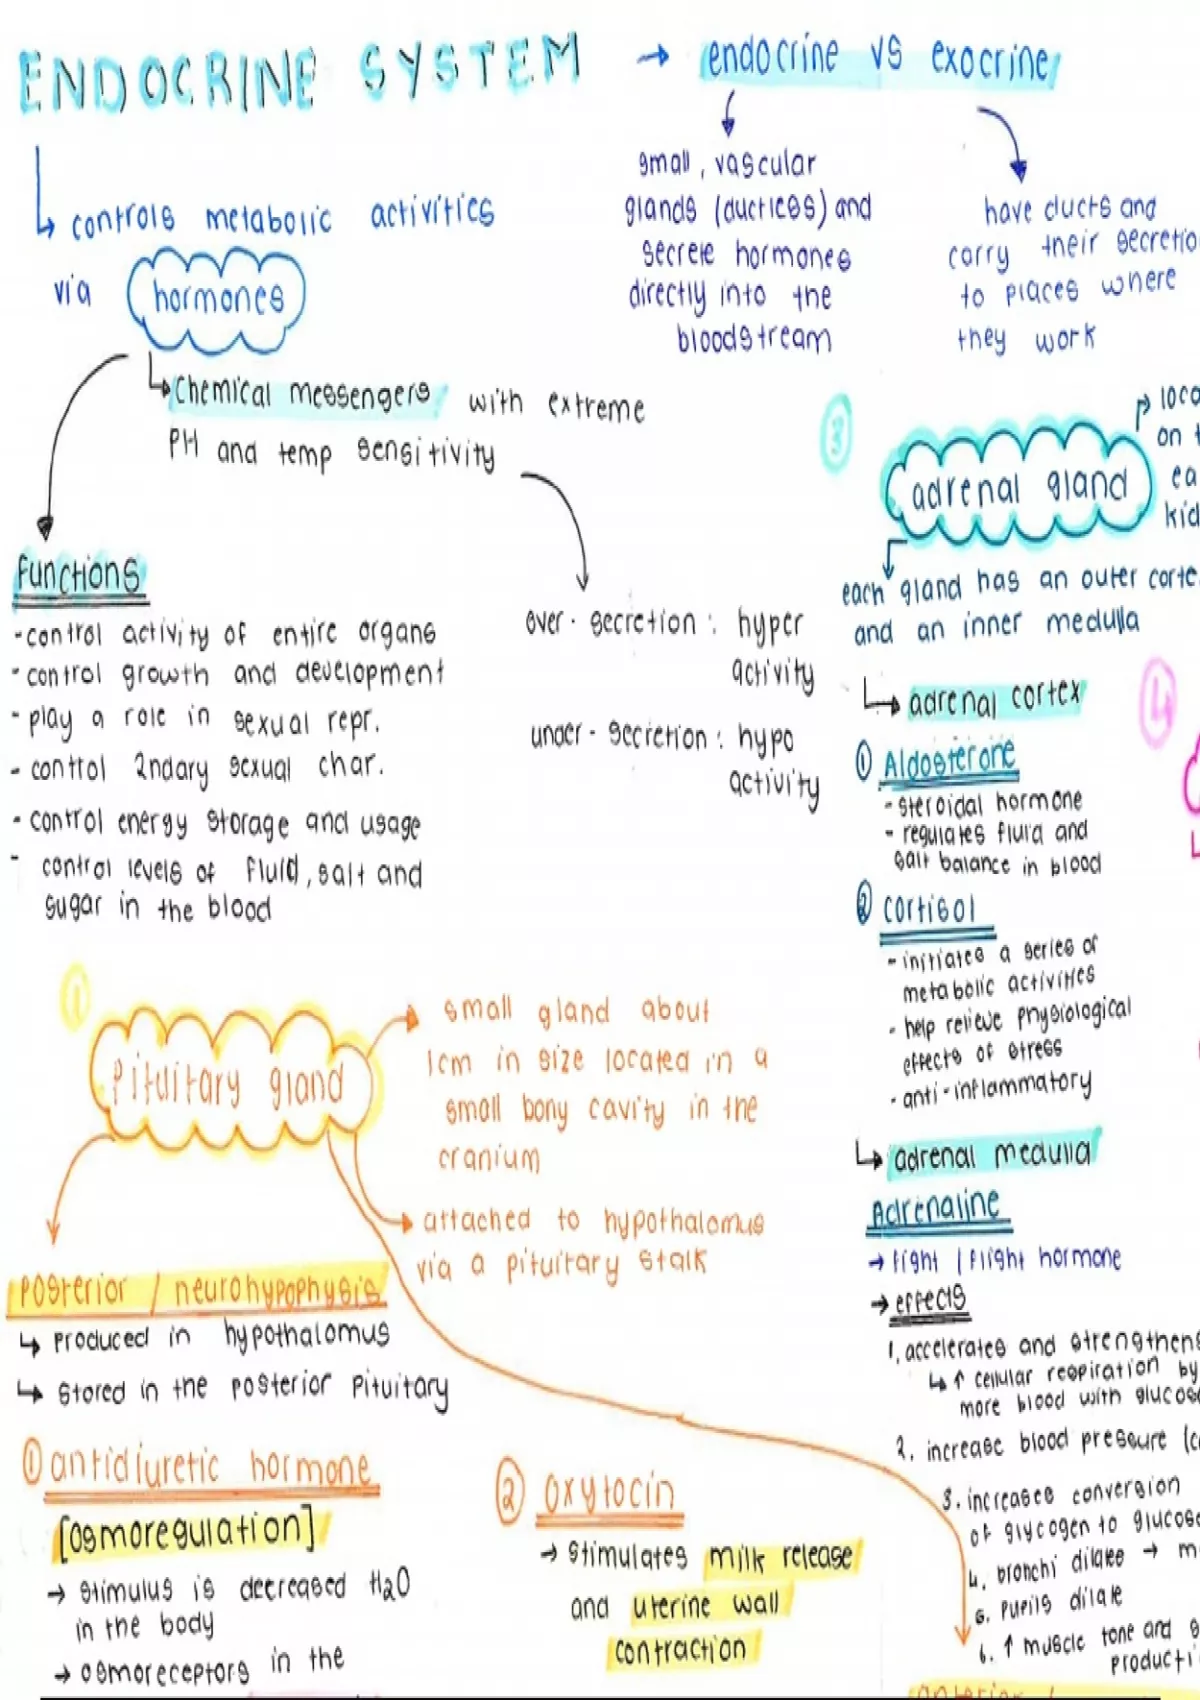 ENDOCRINE SYSTEM
→ endocrine vs exocrine
small, vascular
glands (ductless) and
secrete hormones
directly into the
bloodstream
have ducts and
carry their secretio
to places where
they work
↳ controls metabolic activities
via hormones
↳ chemical messengers with extreme
PH and temp sensitivity
Functions
- control activity of entire organs
- control growth and development
- play a role in sexual repr.
- control 2ndary sexual char.
- control energy storage and usage
- control levels of fluid, salt and
sugar in the blood
over-secretion: hyper
activity
under-secretion: hypo
activity
3
adrenal gland
→ loca
on t
ea
kid
each gland has an outer corte
and an inner medulla
↳ adrenal cortex
① Aldosterone
- steroidal hormone
- regulates fluid and
salt balance in blood
② cortisol
- initiates a series of
metabolic activities
- help relieve physiological
effects of stress
- anti-inflammatory
↳ adrenal medulla
Adrenaline
→ fight / flight hormone
→ effects
1. accelerates and strengthens
↳ ↑ cellular respiration by
more blood with glucos
2. increase blood pressure (c
3. increases conversion
of glycogen to glucos
4. bronchi dilate → m
5. pupils dilate
6. ↑ muscle tone and s
producti
4
1
Pituitary gland
small gland about
1cm in size located in a
small bony cavity in the
cranium
attached to hypothalamus
via a pituitary stalk
posterior / neurohypophysis
↳ produced in hypothalamus
↳ stored in the posterior pituitary
① antidiuretic hormone
[osmoregulation]
→ stimulus is decreased H₂O
in the body
→ osmoreceptors in the
② oxytocin
→ stimulates milk release
and uterine wall
contraction
anterior /